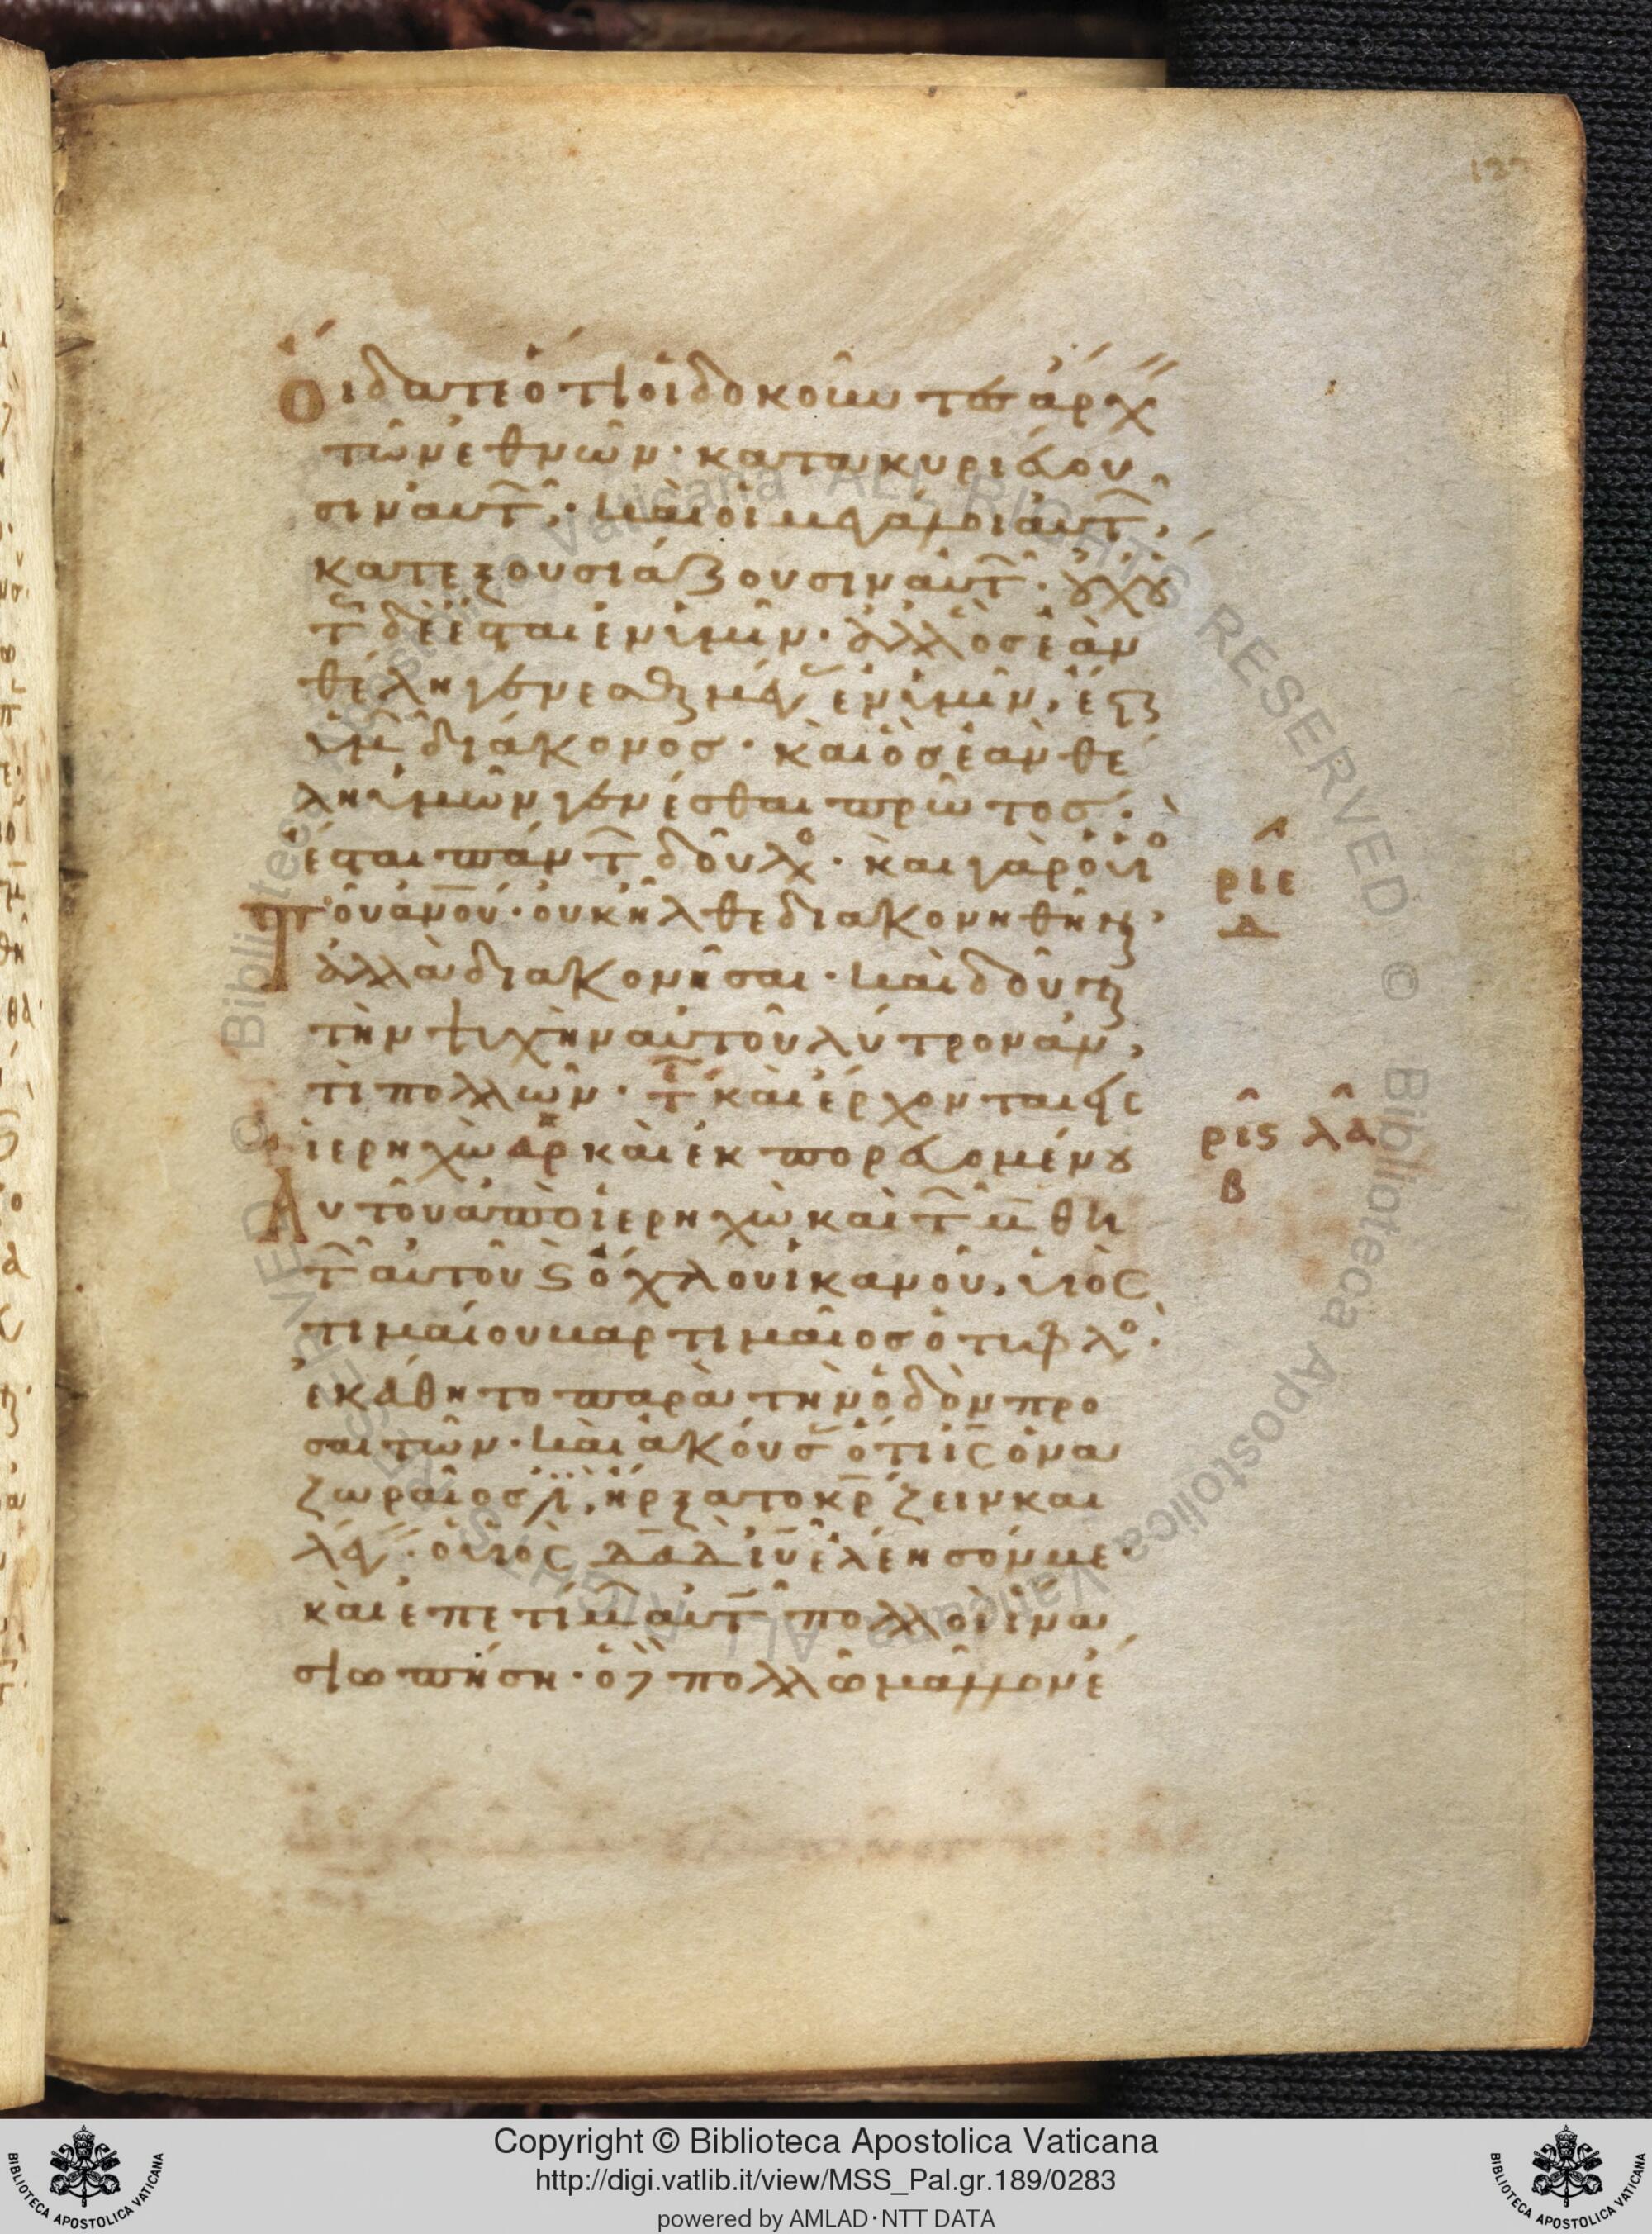 οἴδατε ὅτι οἱ δοκοῦντ ἀρχ
τῶν ἐθνῶν· κατακυριεύου
σιν αὐτ̑· καὶ οἱ μεγάλοι αὐτ̑
κατεξουσιάζουσιν αὐτ̑· οὐχ οὕ
τ̑ δὲ ἔσται ἐν ὑμῖν· ἀλλ ὃς ἐὰν
θέλη γενέσθαι μέγ̑ ἐν ὑμῖν, ἔσται
ὑμ̑ διάκονος· καὶ ὃς ἐὰν θέ
λη ὑμῶν γενέσθαι πρῶτος·
ἔσται πάντ̑ δοῦλο· καὶ γὰρ ὁ υἱο
τοῦ ἀνου· οὐκ ἦλθε διακονηθῆναι,
ἀλλὰ διακονῆσαι· καὶ δοῦναι
τὴν ψυχὴν αὐτοῦ λύτρον ἀν
τὶ πολλῶν· τ̑ καὶ ἔρχονται εἰς
ἱερηχὼ αρ καὶ ἐκπορευομένου
Αὐτοῦ ἀπὸ ἱερηχὼ καὶ τ̑ μ̑αθη
τ̑ αὐτοῦ ϛ ὄχλου ἱκανοῦ, υἱὸς
τιμαίου βαρτιμαῖος ὁ τυφλο
ἐκάθητο παρὰ τὴν ὁδὸν προ
σαιτῶν· καὶ ἀκούσ ὅτι ις ὁ να
ζωραῖός ἐστι, ἤρξατο κρ ζειν και
λέγ· ὁ υἱὸς δαδ ιυ ἐλέησόν με·
καὶ ἐπετίμ αὐτ̑ πολλοὶ ἵνα
σιωπήση· ὁ δὲ πολλῶ μᾶλλον ἔ
ριε
δ
ρις λα
β
Copyright © Biblioteca Apostolica Vaticana
http://digi.vatlib.it/view/MSS_Pal.gr.189/0283
powered by AMLAD·NTT DATA
BIBLIOTECA APOSTOLICA VATICANA
BIBLIOTECA APOSTOLICA VATICANA